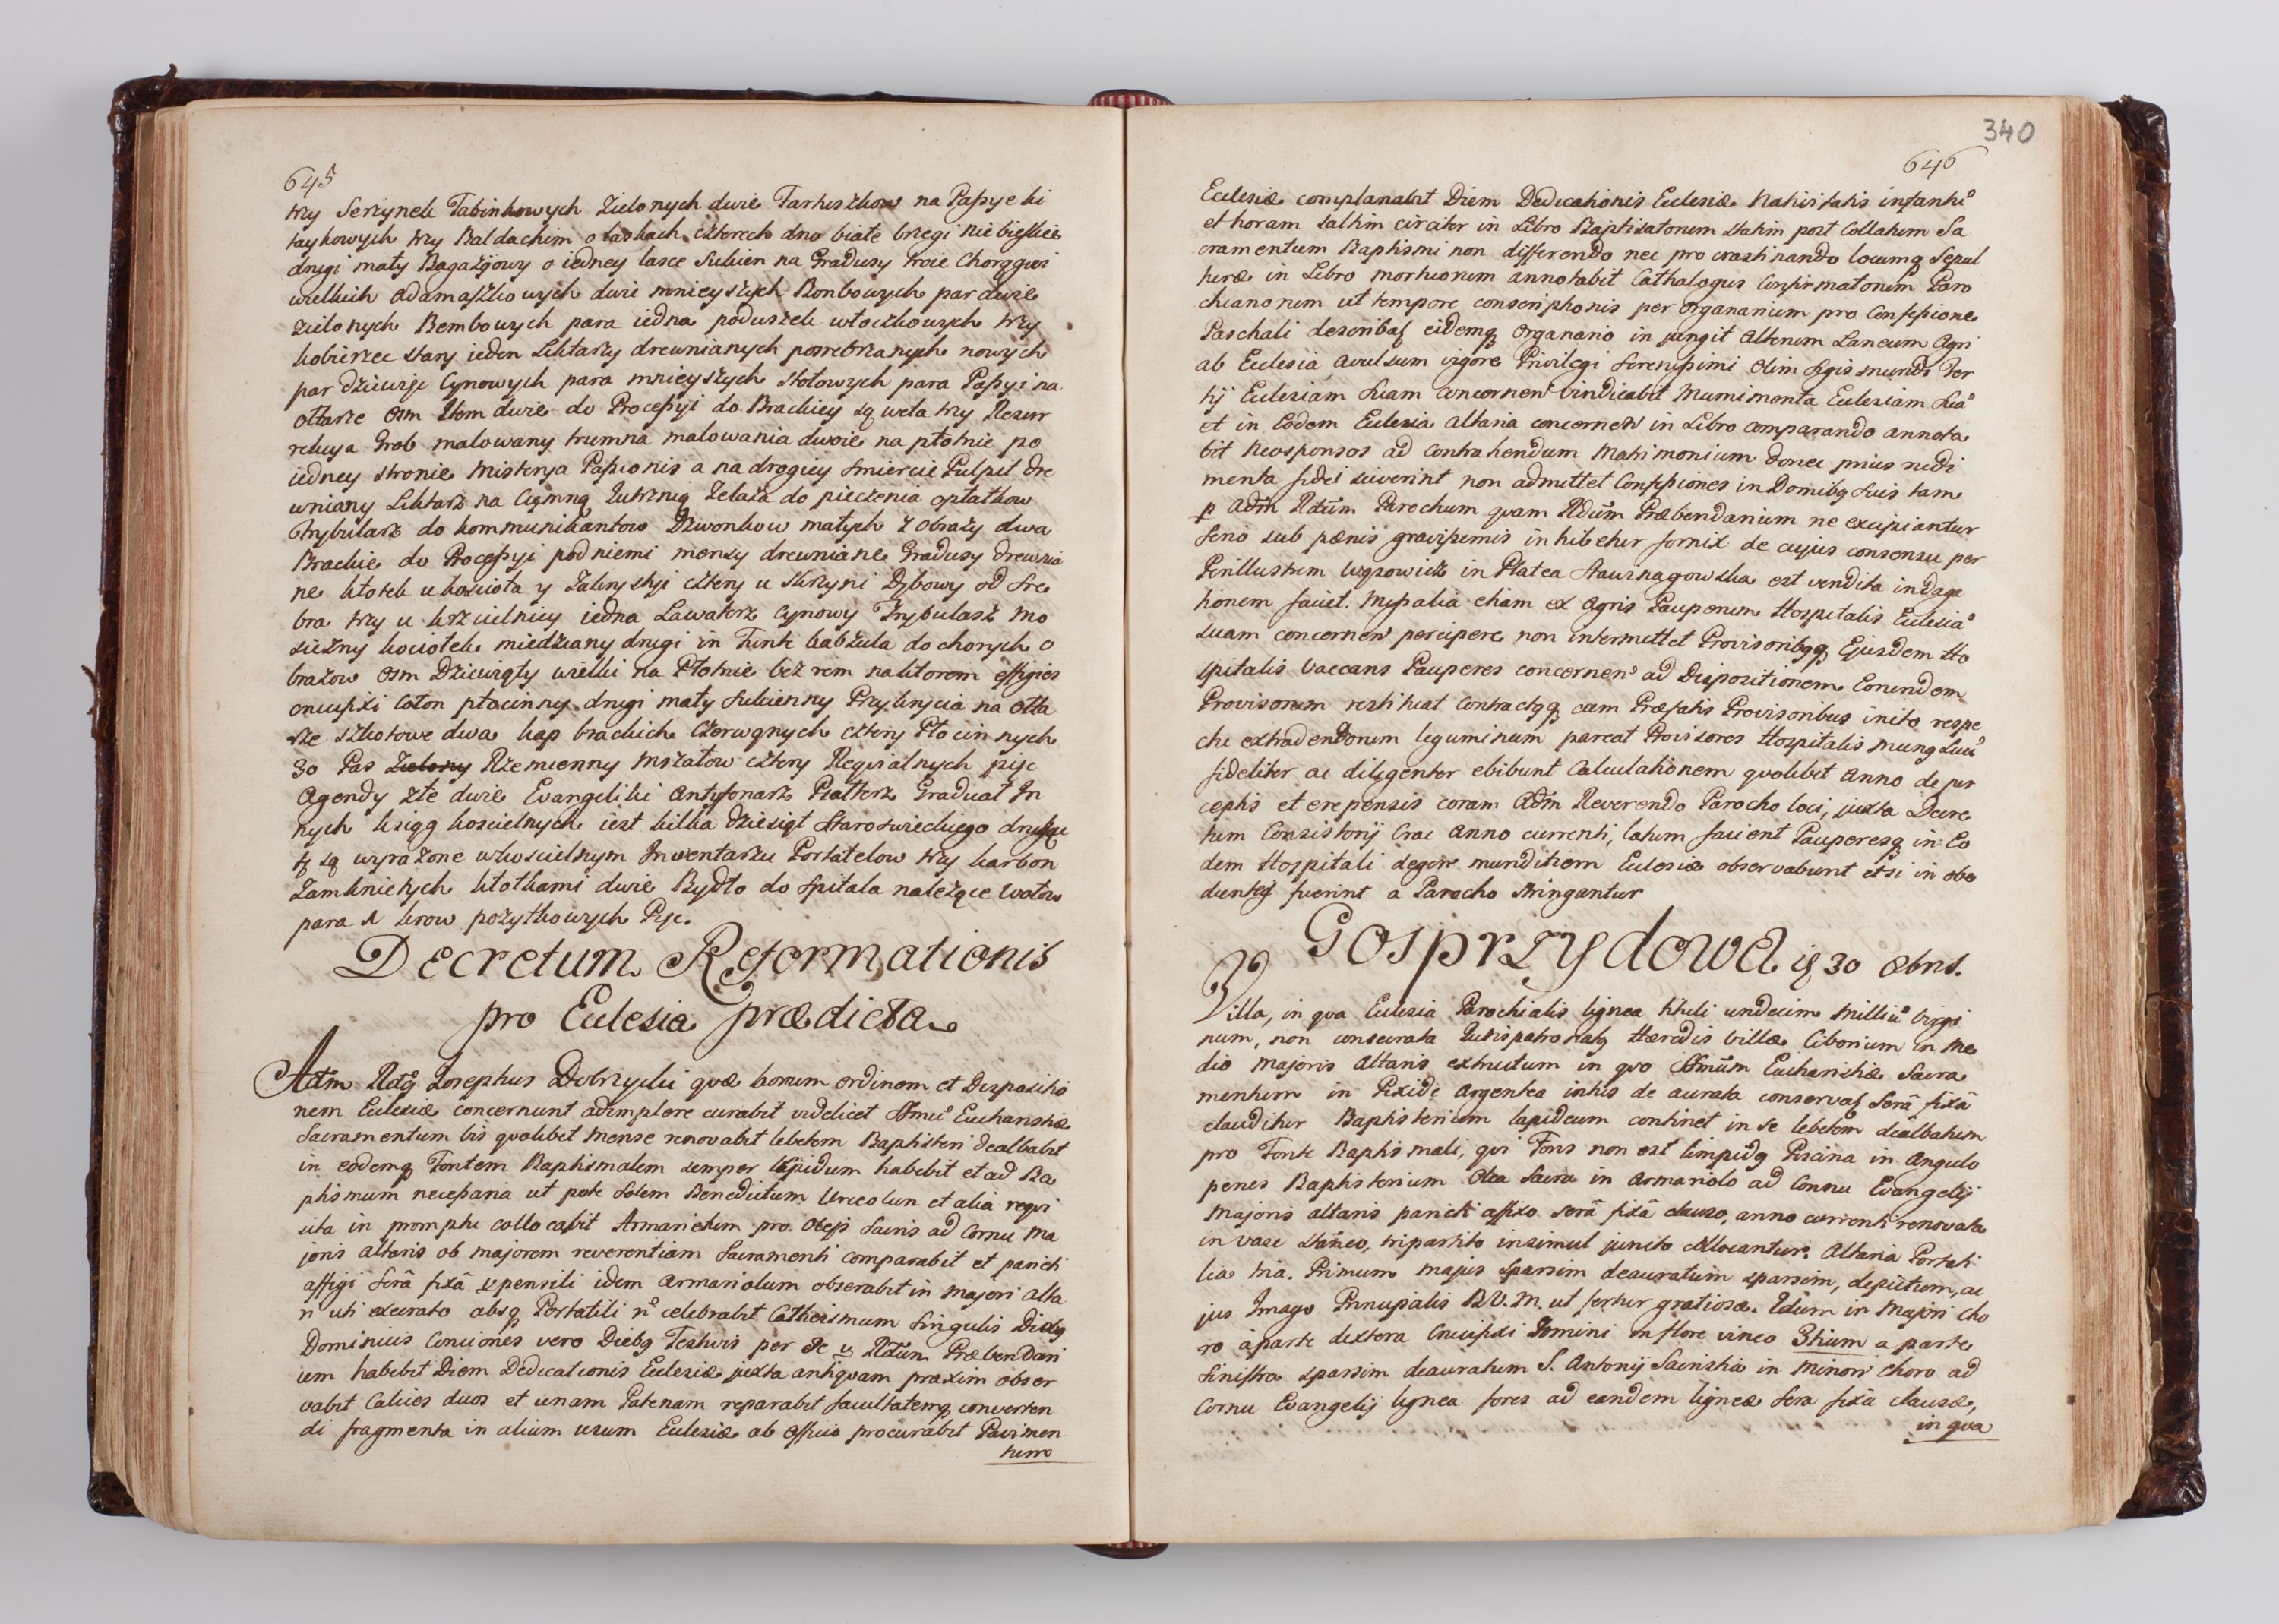 645
trzy Serzynek Tabinkowych Zielonych dwie Fartuszkow na Passyjki
taykowych trzy Baldachim o laskach czterech dno białe brzegi niebieskie
drugi mały Bagażijowy o iedney lasce Sukien na Gradusy troie Chorągwi
wielkich Adamaszkowych dwie mnieyszych Rombowych par dwie
Zielonych Bembowych para iedna poduszek włoczkowych trzy
kobierzec stary ieden Lichtarzy drewnianych posrebrzanych nowych
par dziewięc Cynowych para mnieyszych stołowych para Passyi na
ołtarze Osm Item dwie do Processyi do Brackiey są weta trzy Resur
rekcya Grob malowany trumna malowania dwoie na płotnie po
iedney stronie Misterya Passionis a na drogiey smiercie Pulpit dre
wniany Lichtarz na Ciemną Jutrznią Zelaza do pieczenia opłatkow
Trybularz do kommunikantow Dzwonkow małych Z Obrazy dwa
Brackie do Processyi pod niemi mensy drewniane Gradusy drewnia
ne kłotek u koscioła y Zakrystyi cztery u Skrzyni Dębowy od sre
bra trzy u krzcielnicy iedna Lawaterz Cynowy Trybularz mo
siężny kociołek miedziany drugi in Funte kabzula do chorych o
brazow Osm Dziewiąty wielki na Płotnie bez rem na ktorem effigies
crucifixi Coton płocinny drugi mały Sukienny Przykrycia na Ołta
rze szkotowe dwa kap brackich Czerwonych cztery Płocinnych
30 Pas Zielony Rzemienny Mszałow cztery Requialnych pięc
Agendy złe dwie Evangeliki Antyfonarz Psałterz Graduał In
nych ksiąg koscielnych iest kilka dziesiąt Staroswieckiego druku
tę są wyrażone w koscielnym Inwentarzu Portatelow trzy karbon
Zamknietych kłotkami dwie Bydło do Spitala należące Wołow
para A krow pożytkowych Pięc.
Decretum Reformationis
pro Ecclesia prædicta
Adm Rdus Josephus Dobrzycki quæ bonum ordinem et Dispositio
nem Ecclesiæ concernunt adimplere curabit videlicet SSmū Eucharistiæ
Sacramentum bis quolibet Mense renovabit lebetem Baptisteri dealbabit
in eodemq Fontem Baptismalem semper lipidum habebit et ad Ba
ptismum necessaria ut pote Solem Benedictum Urceolun et alia requi
sita in promptu collocabit Armarictum pro Oleis Sacris ad Cornu Ma
joris altaris ob majorem reverentiam Sacramenti comparabit et parieti
affigi Serâ fixâ et pensili idem Armariolum obserabit in majori alta
ri uti execrato absq Portatili no celebrabit Cathecismum Singulis Diebq
Dominicis Conciones vero Diebq Festivis per se et Rdūm Præbendari
um habebit Diem Dedicationis Ecclesiæ juxta antiquam praxim obser
vabit Calices duos et unam Patenam reparabit facultatemq converten
di fragmenta in alium usum Ecclesiæ ab Officio procurabit Pavimen
tum
340
646
Ecclesiæ complanabit Diem Dedicationis Ecclesiæ Nativitatis infantiū
et horam saltim circiter in Libro Baptisatorum statim post Collatum Sa
cramentum Baptismi non differendo nec pro crastinando locumq Sepul
turæ in Libro mortuorum annotabit Cathalogus Confirmatorum Paro
chianorum ut tempore conscriptionis per Organarium pro Confessione
Paschali describaf eidemq Organario in jungit Alterum Laneum Agri
ab Ecclesia avulsum vigore Privilegi Serenissimi Olim Sigismundi Ter
tij Ecclesiam Suam concernen vindicabit Munimenta Ecclesiam Suā
et in Eodem Ecclesia Altaria concernen in Libro comparando annota
bit Neosponsos ad Contrahendum Matrimonium donec prius rudi
menta fidei sciverint non admittet Confessiones in Domibq Suis tam
p Adm Rdūm Parochum quam Rdūm Præbendarium ne excipiantur
serio sub pœnis gravissimis inhibetur fornix de cujus consensu per
Perillustrem Wąsowicz in Platea Staurnagowska est vendita indaga
tionem faciet. Missalia etiam ex Agris Pauperum Hospitalis Ecclesiā
suam concernen percipere non intermittet Provisoribqq Ejusdem Ho
spitalis Vaccans Pauperes concernen ad Dispositionem Eorundem
Provisorum restituat Contractqq cum Præfatis Provisoribus inito respe
ctu extradendorum leguminum pareat Provisores Hospitalis Munq Suū
fideliter ac diligenter obibunt Calculationem quolibet Anno de per
ceptis et expensis coram Adm Reverendo Parocho loci, juxta Decre
tum Consistorij Crac anno currenti, latum facient Pauperesq in Eo
dem Hospitali degere munditiem Ecclesiæ observabunt et si in obe
dientes fuerint a Parocho stringantur
Gosprzydowa is 30 Xbris.
Villa, in qva Ecclesia Parochialis lignea tituli undecim Milliū Virgi
num, non consecrata Jurispatronatq Hæredis villæ Ciborium in Me
dio Majoris Altaris extructum in quo SSmūm Eucharistiæ Sacra
mentum in Pixide Argentea intus de aurata conservaf Serâ fixâ
clauditur Baptisterium lapideum continet in se lebetem dealbatum
pro Fonte Baptismali, qvi Fons non est limpidq Piscina in Angulo
penes Baptisterium Olea Sacra in Armariolo ad Cornu Evangelij
Majoris altaris parieti affixo Serâ fixâ clauso, anno currenti renovata
in vase stāneo, tripartito insimul junito collocantur. Altaria Portati
lia tria. Primum majus sparsim deauratum sparsim, depictum, ac
jus Imago Principalis B.V.M. ut fertur gratiosa. 2dum in Majori Cho
ro à parte dextera Crucifixi Domini in flore vineo 3tium a parte
Sinistra sparsim deauratum S. Antonij Sacristia in Minori Choro ad
Cornu Evangelij lignea fores ad eandem ligneæ Sera fixa clausæ,
in qva